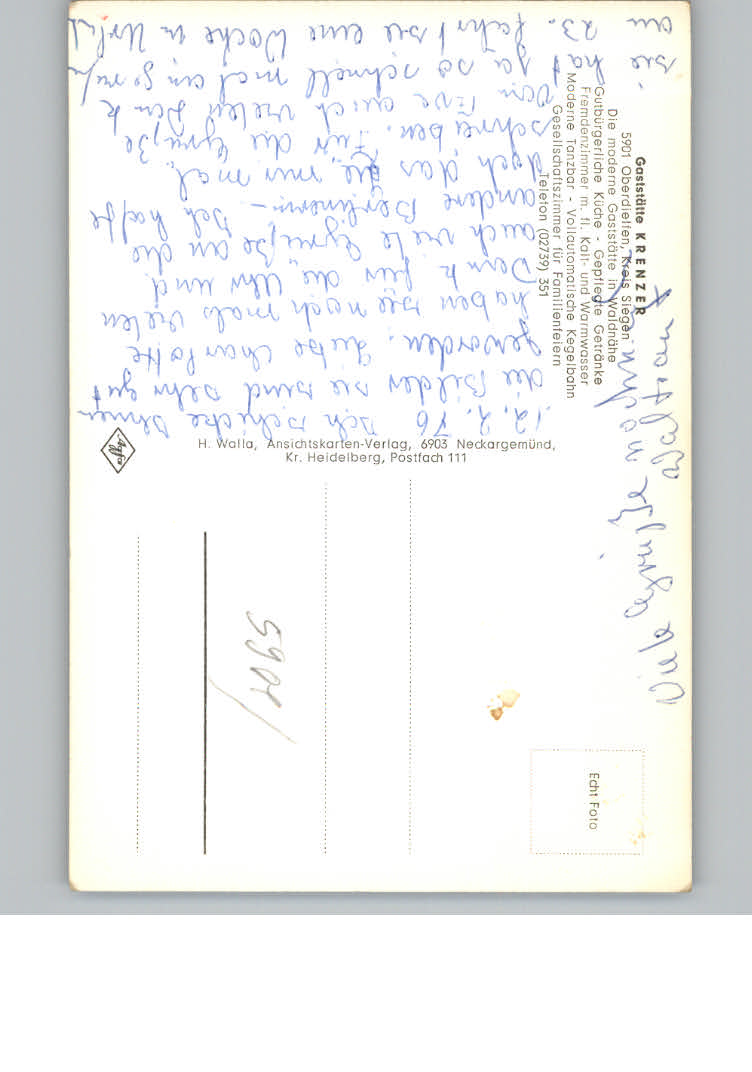 Gaststätte KRENZER
5901 Oberdielfen, Kreis Siegen
Die moderne Gaststätte in Waldnähe
Gutbürgerliche Küche - Gepflegte Getränke
Fremdenzimmer m. fl. Kalt- und Warmwasser
Moderne Tanzbar - Vollautomatische Kegelbahn
Gesellschaftszimmer für Familienfeiern
Telefon (02739) 351
H. Walla, Ansichtskarten-Verlag, 6903 Neckargemünd,
Kr. Heidelberg, Postfach 111
Agfa
Echt Foto
5901
12.2.76 Ich schicke Ihnen
die Bilder sie sind sehr gut
geworden. Liebe Charlotte
haben Sie nochmals vielen
Dank für die Uhr und
auch viele Grüße an die
andere Berlinerin. - Ich hoffe
doch das sie mir mal
schreiben. Für die Grüße
von Eve auch vielen Dank
sie hat ja so schnell mal
am 23. fährt sie eine Woche in
Viele Grüße
Waltraut